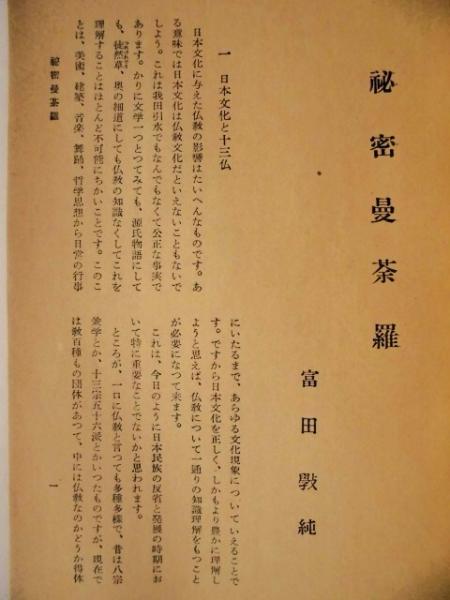 祕密曼荼羅
富田斅純
一 日本文化と十三仏
日本文化に与えた仏教の影響はたいへんなものです。あ
る意味では日本文化は仏教文化だといえないこともないで
しよう。これは我田引水でもなんでもなくて公正な事実で
あります。かりに文学一つとつてみても、源氏物語にして
も、徒然草、奥の細道にしても仏教の知識なくしてこれを
理解することはほとんど不可能にちかいことです。このこ
とは、美術、建築、音楽、舞踊、哲学思想から日常の行事
にいたるまで、あらゆる文化現象についていえることで
す。ですから日本文化を正しく、しかもより豊かに理解し
ようと思えば、仏教について一通りの知識理解をもつこと
が必要になつて来ます。
これは、今日のように日本民族の反省と発展の時期にお
いて特に重要なことでないかと思われます。
ところが、一口に仏教と言つても多種多様で、昔は八宗
兼学とか、十三宗五十六派とかいつたものですが、現在で
は数百種もの団体があつて、中には仏教なのかどうか得体
祕密曼荼羅
一